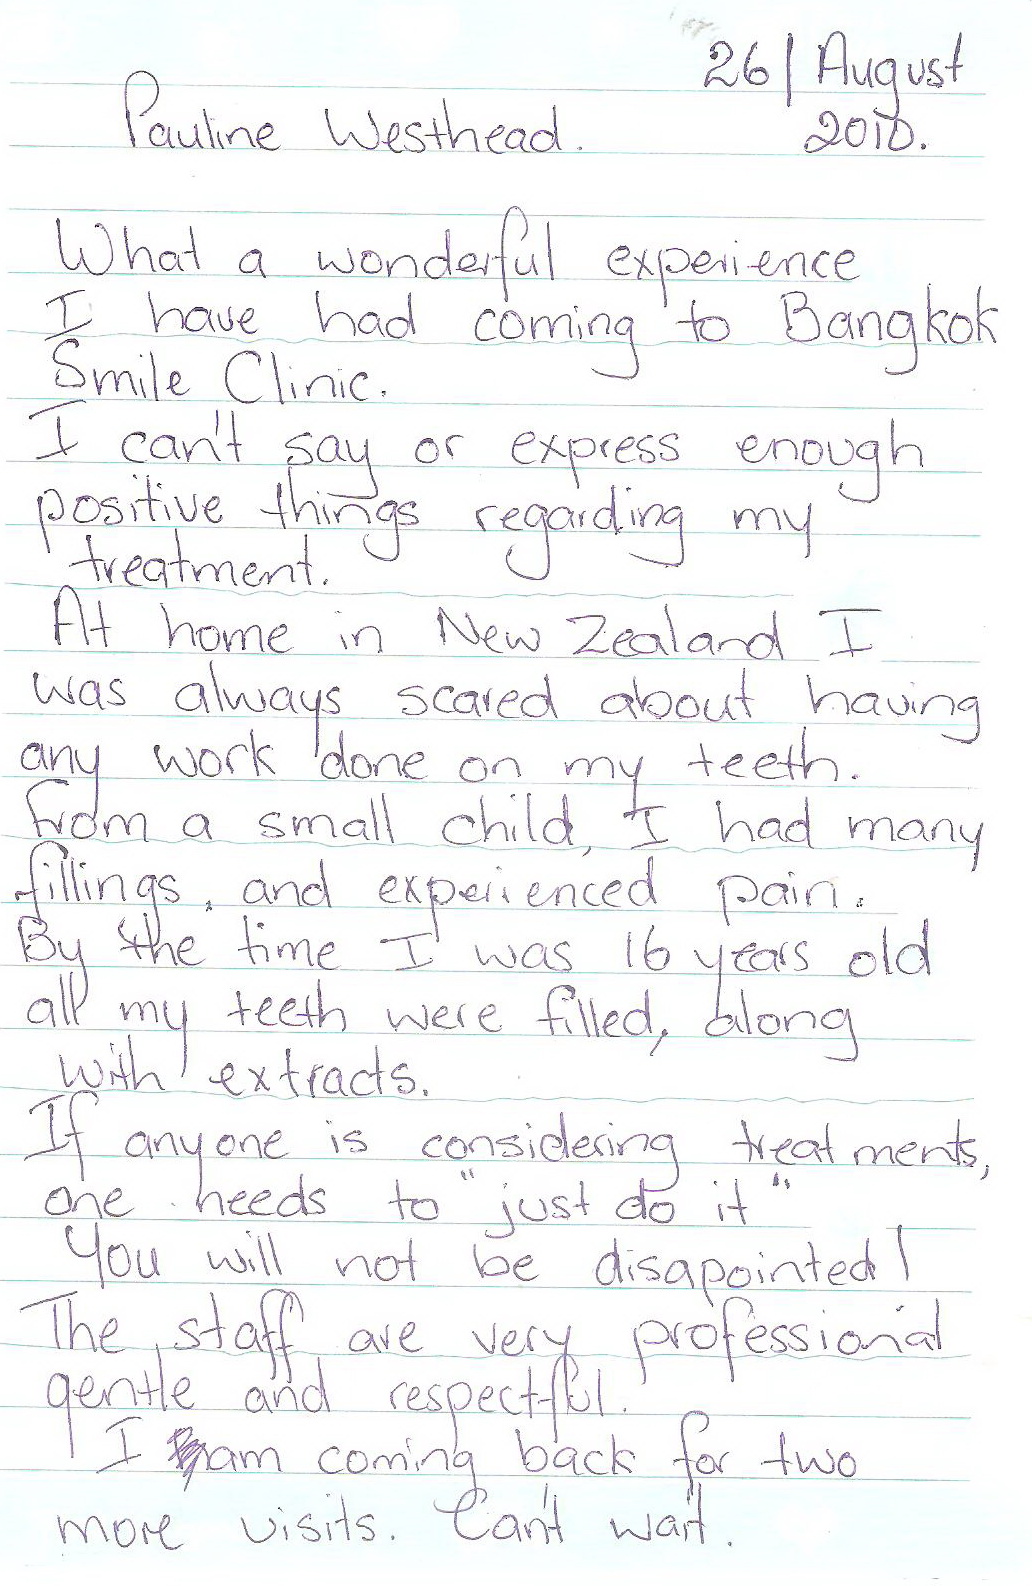 26/August
Pauline Westhead. 2010.
What a wonderful experience
I have had coming to Bangkok
Smile Clinic.
I can't say or express enough
positive things regarding my
treatment.
At home in New Zealand I
was always scared about having
any work done on my teeth.
From a small child, I had many
fillings, and experienced pain.
By the time I was 16 years old
all my teeth were filled, along
with extracts.
If anyone is considering treatments,
one needs to "just do it"
You will not be disapointed!
The staff are very professional
gentle and respectful.
I am coming back for two
more visits. Can't wait.